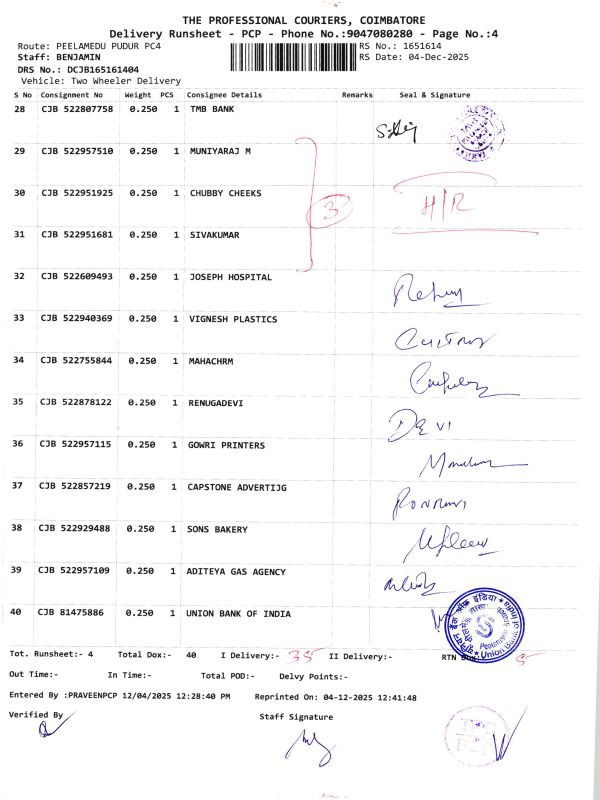 THE PROFESSIONAL COURIERS, COIMBATORE
Delivery Runsheet - PCP - Phone No.:9047080280 - Page No.:4
Route: PEELAMEDU PUDUR PC4 RS No.: 1651614
Staff: BENJAMIN RS Date: 04-Dec-2025
DRS No.: DCJB165161404
Vehicle: Two Wheeler Delivery
S No Consignment No Weight PCS Consignee Details Remarks Seal & Signature
28 CJB 522807758 0.250 1 TMB BANK
29 CJB 522957510 0.250 1 MUNIYARAJ M
30 CJB 522951925 0.250 1 CHUBBY CHEEKS 3 H/R
31 CJB 522951681 0.250 1 SIVAKUMAR
32 CJB 522609493 0.250 1 JOSEPH HOSPITAL
33 CJB 522940369 0.250 1 VIGNESH PLASTICS
34 CJB 522755844 0.250 1 MAHACHRM
35 CJB 522878122 0.250 1 RENUGADEVI DEVI
36 CJB 522957115 0.250 1 GOWRI PRINTERS
37 CJB 522857219 0.250 1 CAPSTONE ADVERTIJG
38 CJB 522929488 0.250 1 SONS BAKERY
39 CJB 522957109 0.250 1 ADITEYA GAS AGENCY
40 CJB 81475886 0.250 1 UNION BANK OF INDIA
Union Bank of India
Tot. Runsheet:- 4 Total Dox:- 40 I Delivery:- 35 II Delivery:- RTN 5
Out Time:- In Time:- Total POD:- Delvy Points:-
Entered By :PRAVEENPCP 12/04/2025 12:28:40 PM Reprinted On: 04-12-2025 12:41:48
Verified By Staff Signature